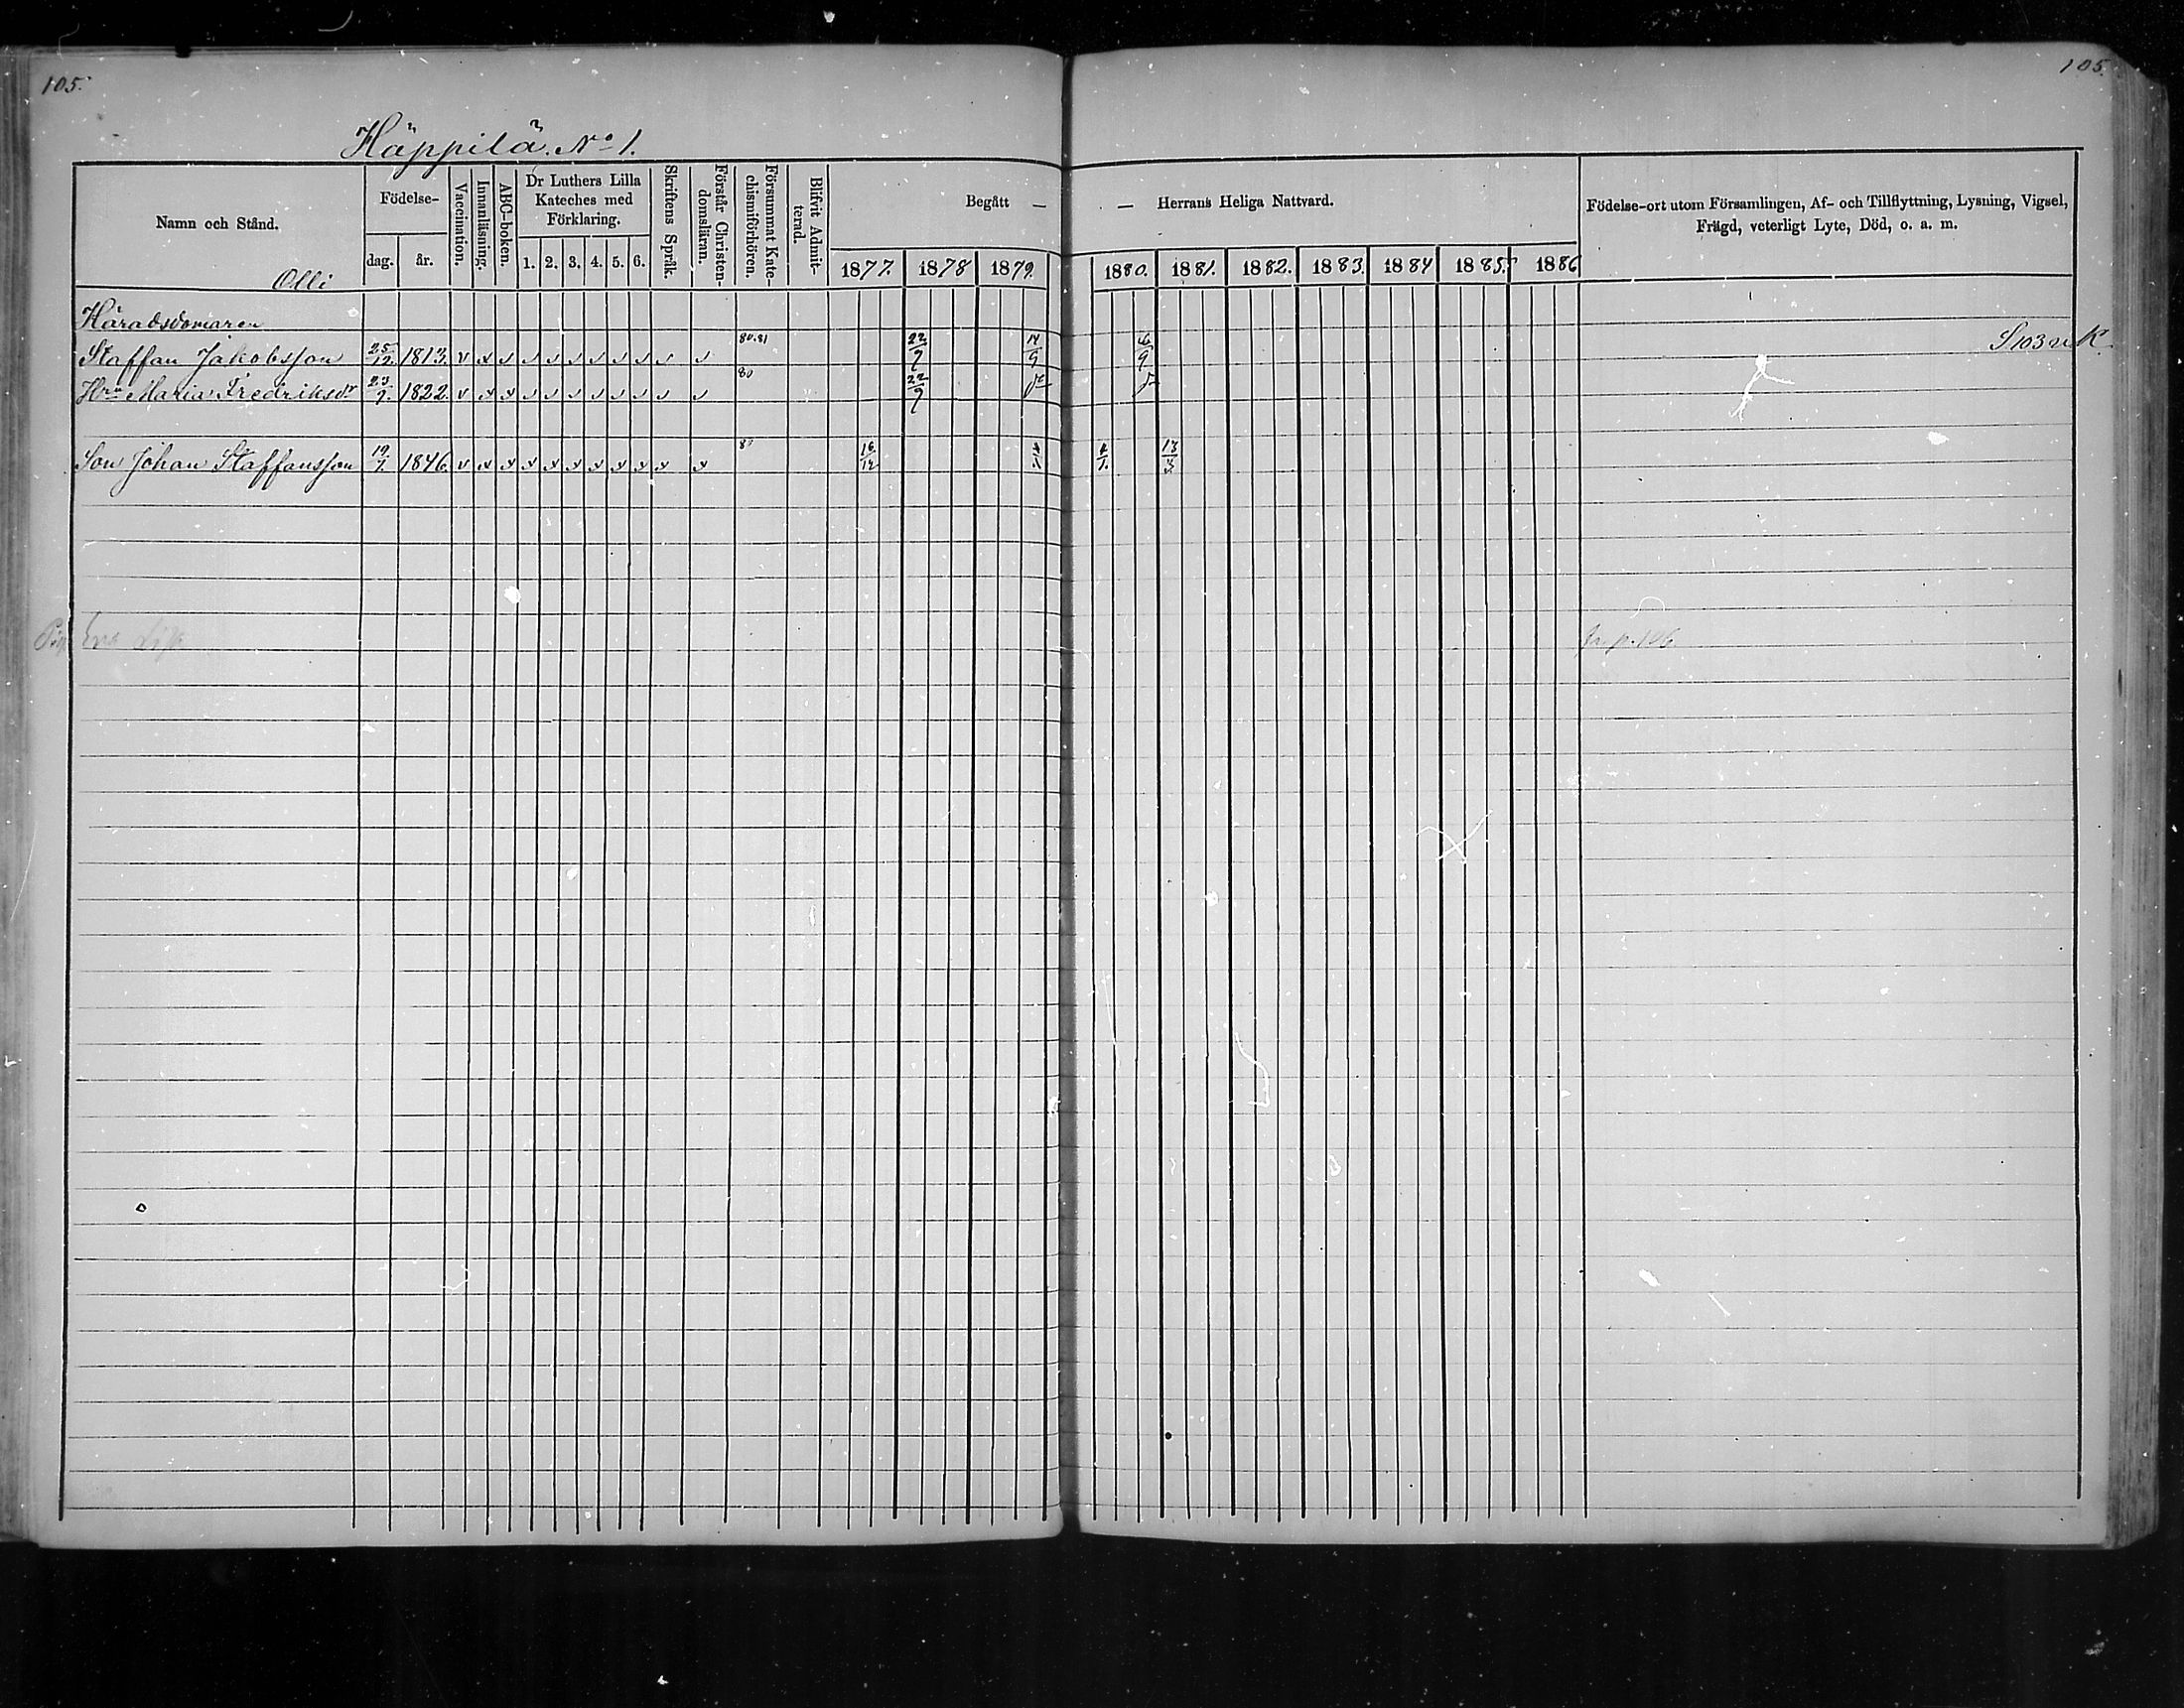 105.
105.
Häppilä. No 1.
Namn och Stånd.
Födelse-
dag.
år.
Vaccination.
Innanläsning.
ABC-boken.
Dr Luthers Lilla
Kateches med
Förklaring.
1. 2. 3. 4. 5. 6.
Skriftens Språk.
Förstår Christen-
domsläran.
Försummat Kate-
chismiförhören.
Blifvit Admit-
terad.
Begått —
— Herrans Heliga Nattvard.
1877. 1878 1879. 1880. 1881. 1882. 1883. 1884 1885. 1886
Födelse-ort utom Församlingen, Af- och Tillflyttning, Lysning, Vigsel,
Frägd, veterligt Lyte, Död, o. a. m.
Olli
Häradsdomaren
Staffan Jakobsson 25/12 1813. 80.81 22/9 14/9 S 103 n K.
Hru Maria Fredriksdr 23/9. 1822. 80 22/9
Son Johan Staffansson 19/7. 1846. 16/12 13/3
Eva
p. 106